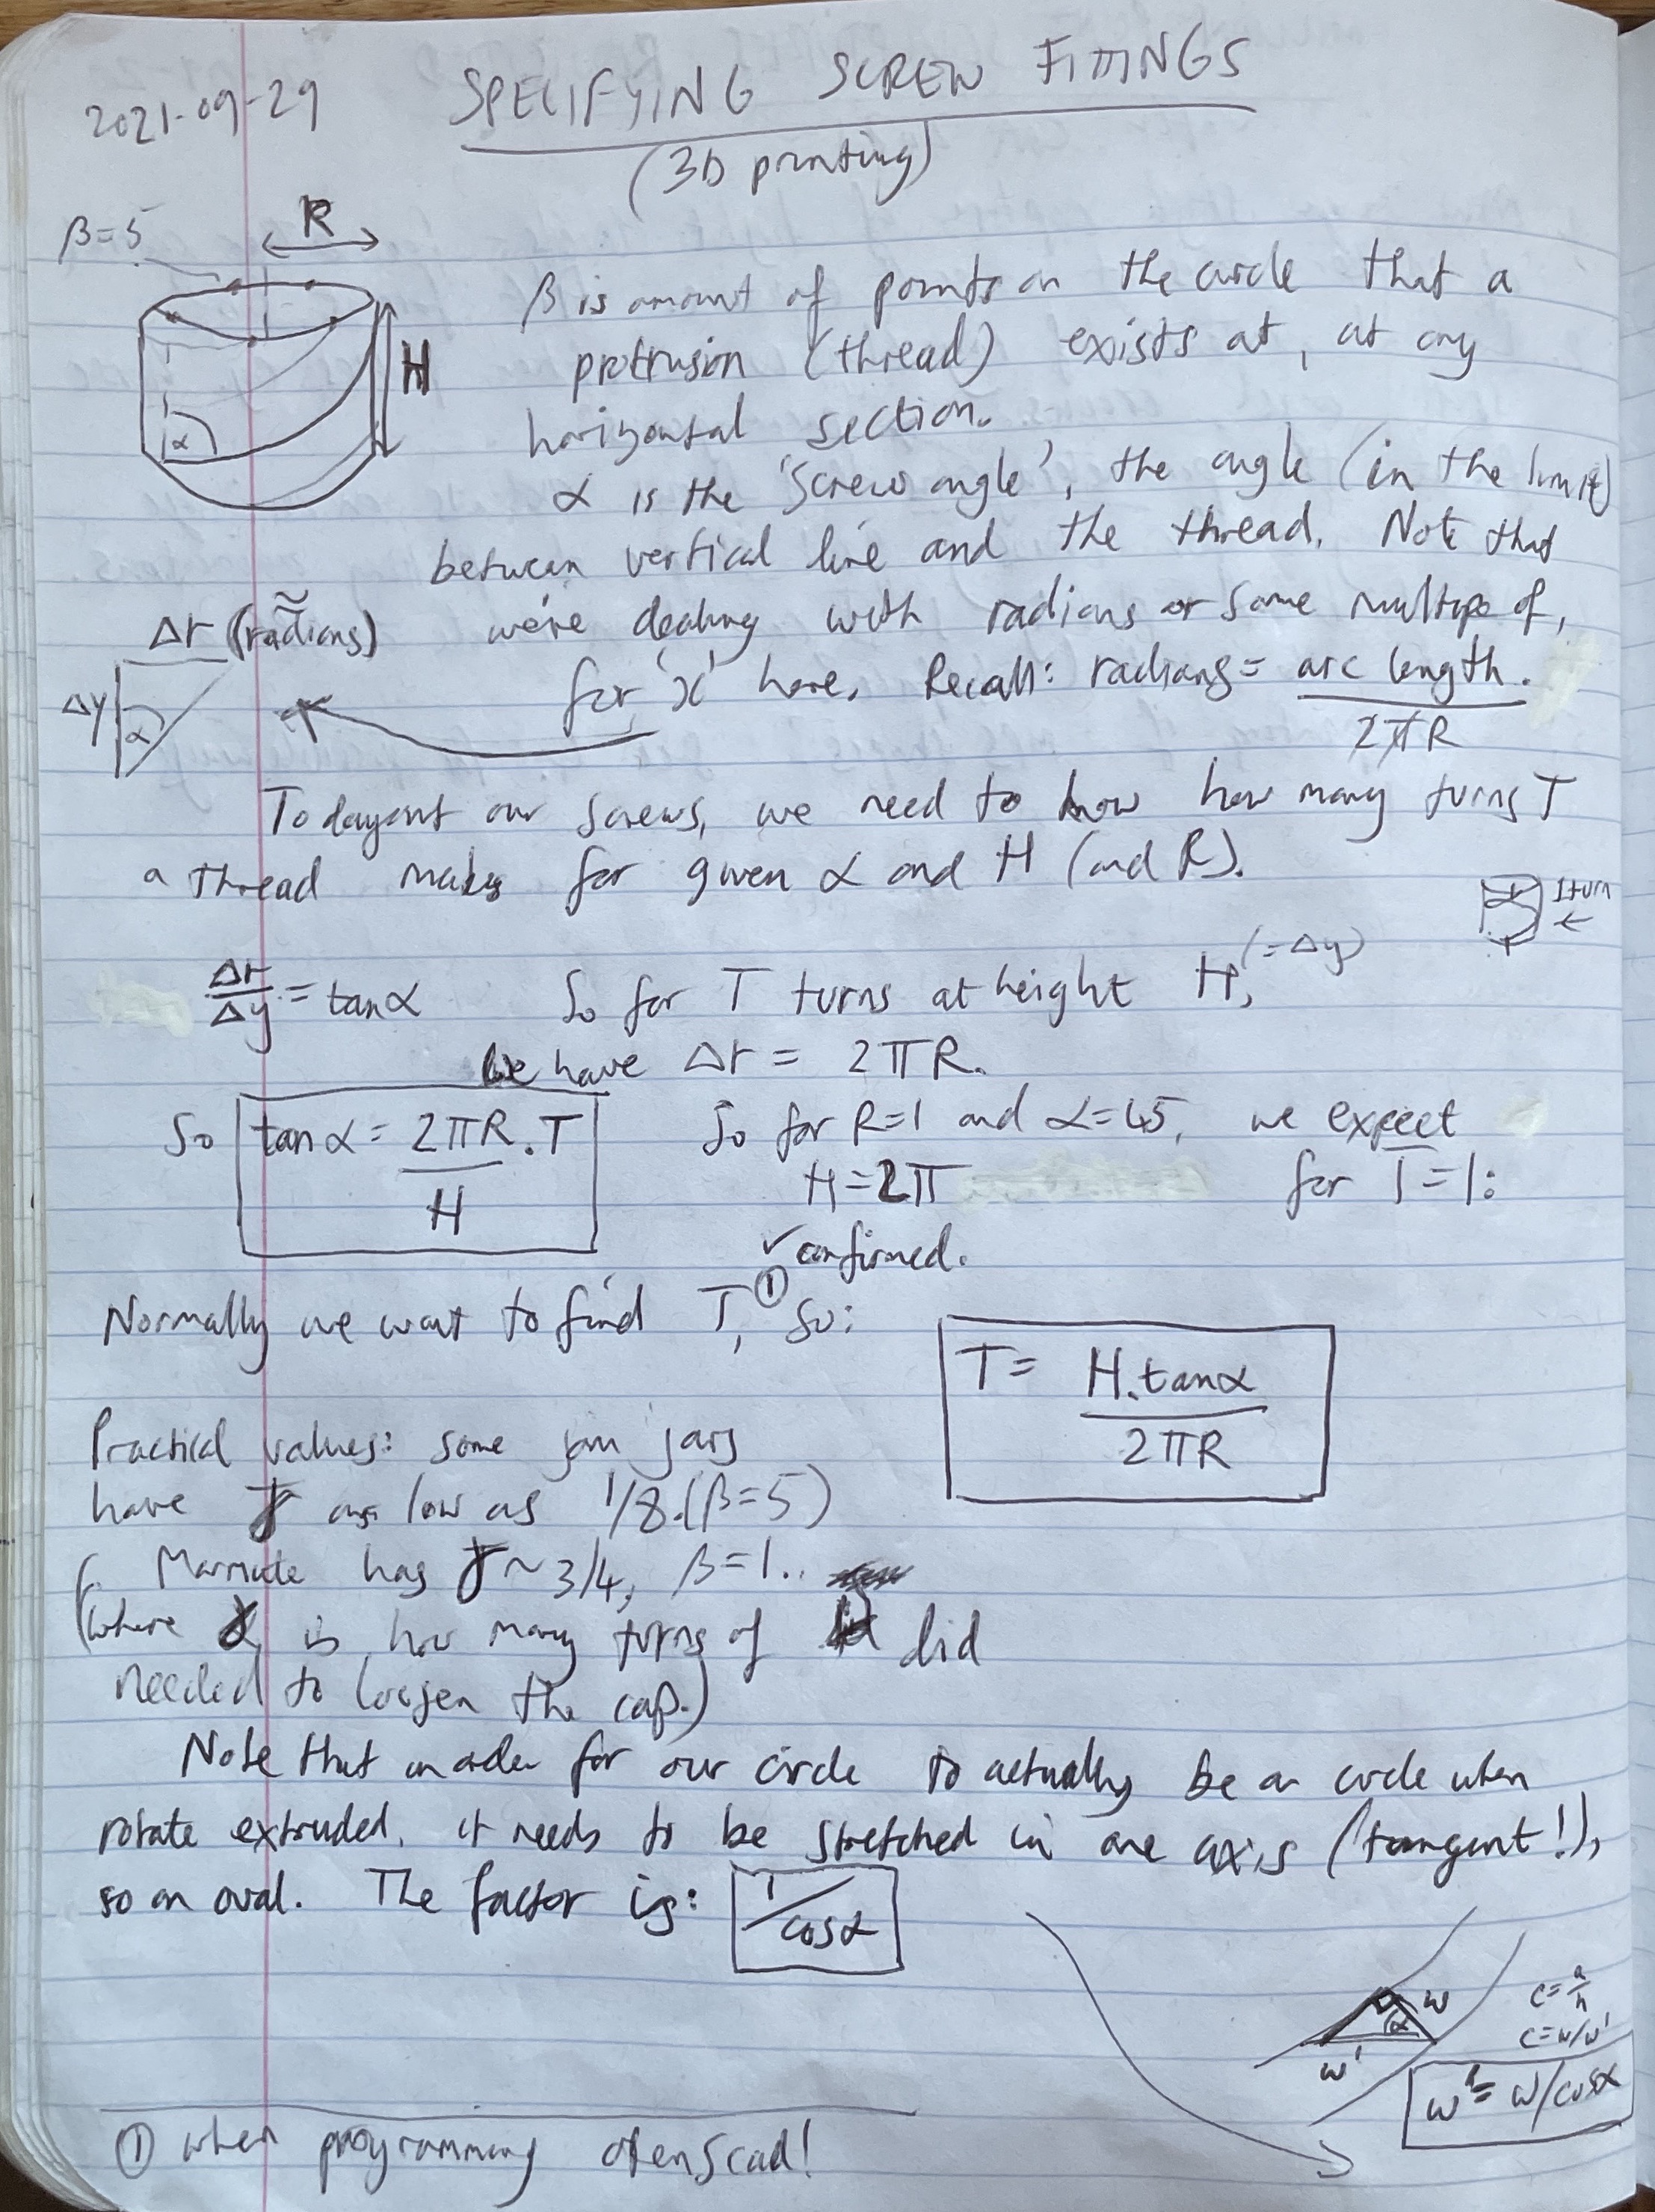 2021-09-29 SPECIFYING SCREW FITTINGS
(3D printing)
β=5
R
H
α
β is amount of points on the circle that a
protrusion (thread) exists at, at any
horizontal section.
α is the 'screw angle', the angle (in the limit)
between vertical line and the thread. Note that
we're dealing with radians or some multiple of,
for 'x' here. Recall: radians = arc length.
2πR
Δr (radians)
Δy
α
To layout our screws, we need to know how many turns T
a thread makes for given α and H (and R).
1 turn
Δr/Δy = tanα So for T turns at height H, (=Δy)
we have Δr = 2πR.
So tanα = 2πR.T
H
So for R=1 and α=45, we expect
H=2π for T=1:
✓ confirmed.
Normally we want to find T,① so:
T = H.tanα
2πR
Practical values: some jam jars
have γ as low as 1/8.(β=5)
Marmite has γ~3/4, β=1..
(where γ is how many turns of lid
needed to loosen the cap.)
Note that in order for our circle to actually be a circle when
rotate extruded, it needs to be stretched in one axis (tangent!),
so an oval. The factor is: 1/cosα
w
α
w'
c=a/h
c=w/w'
w'=w/cosα
① when programming openscad!